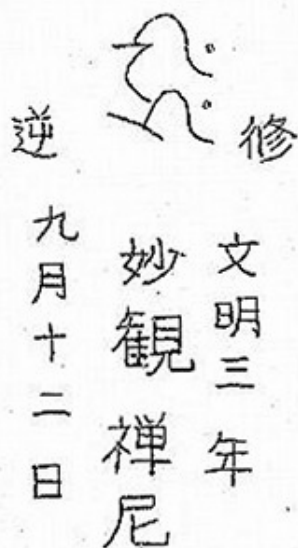 修
文明三年
妙観禅尼
逆
九月十二日